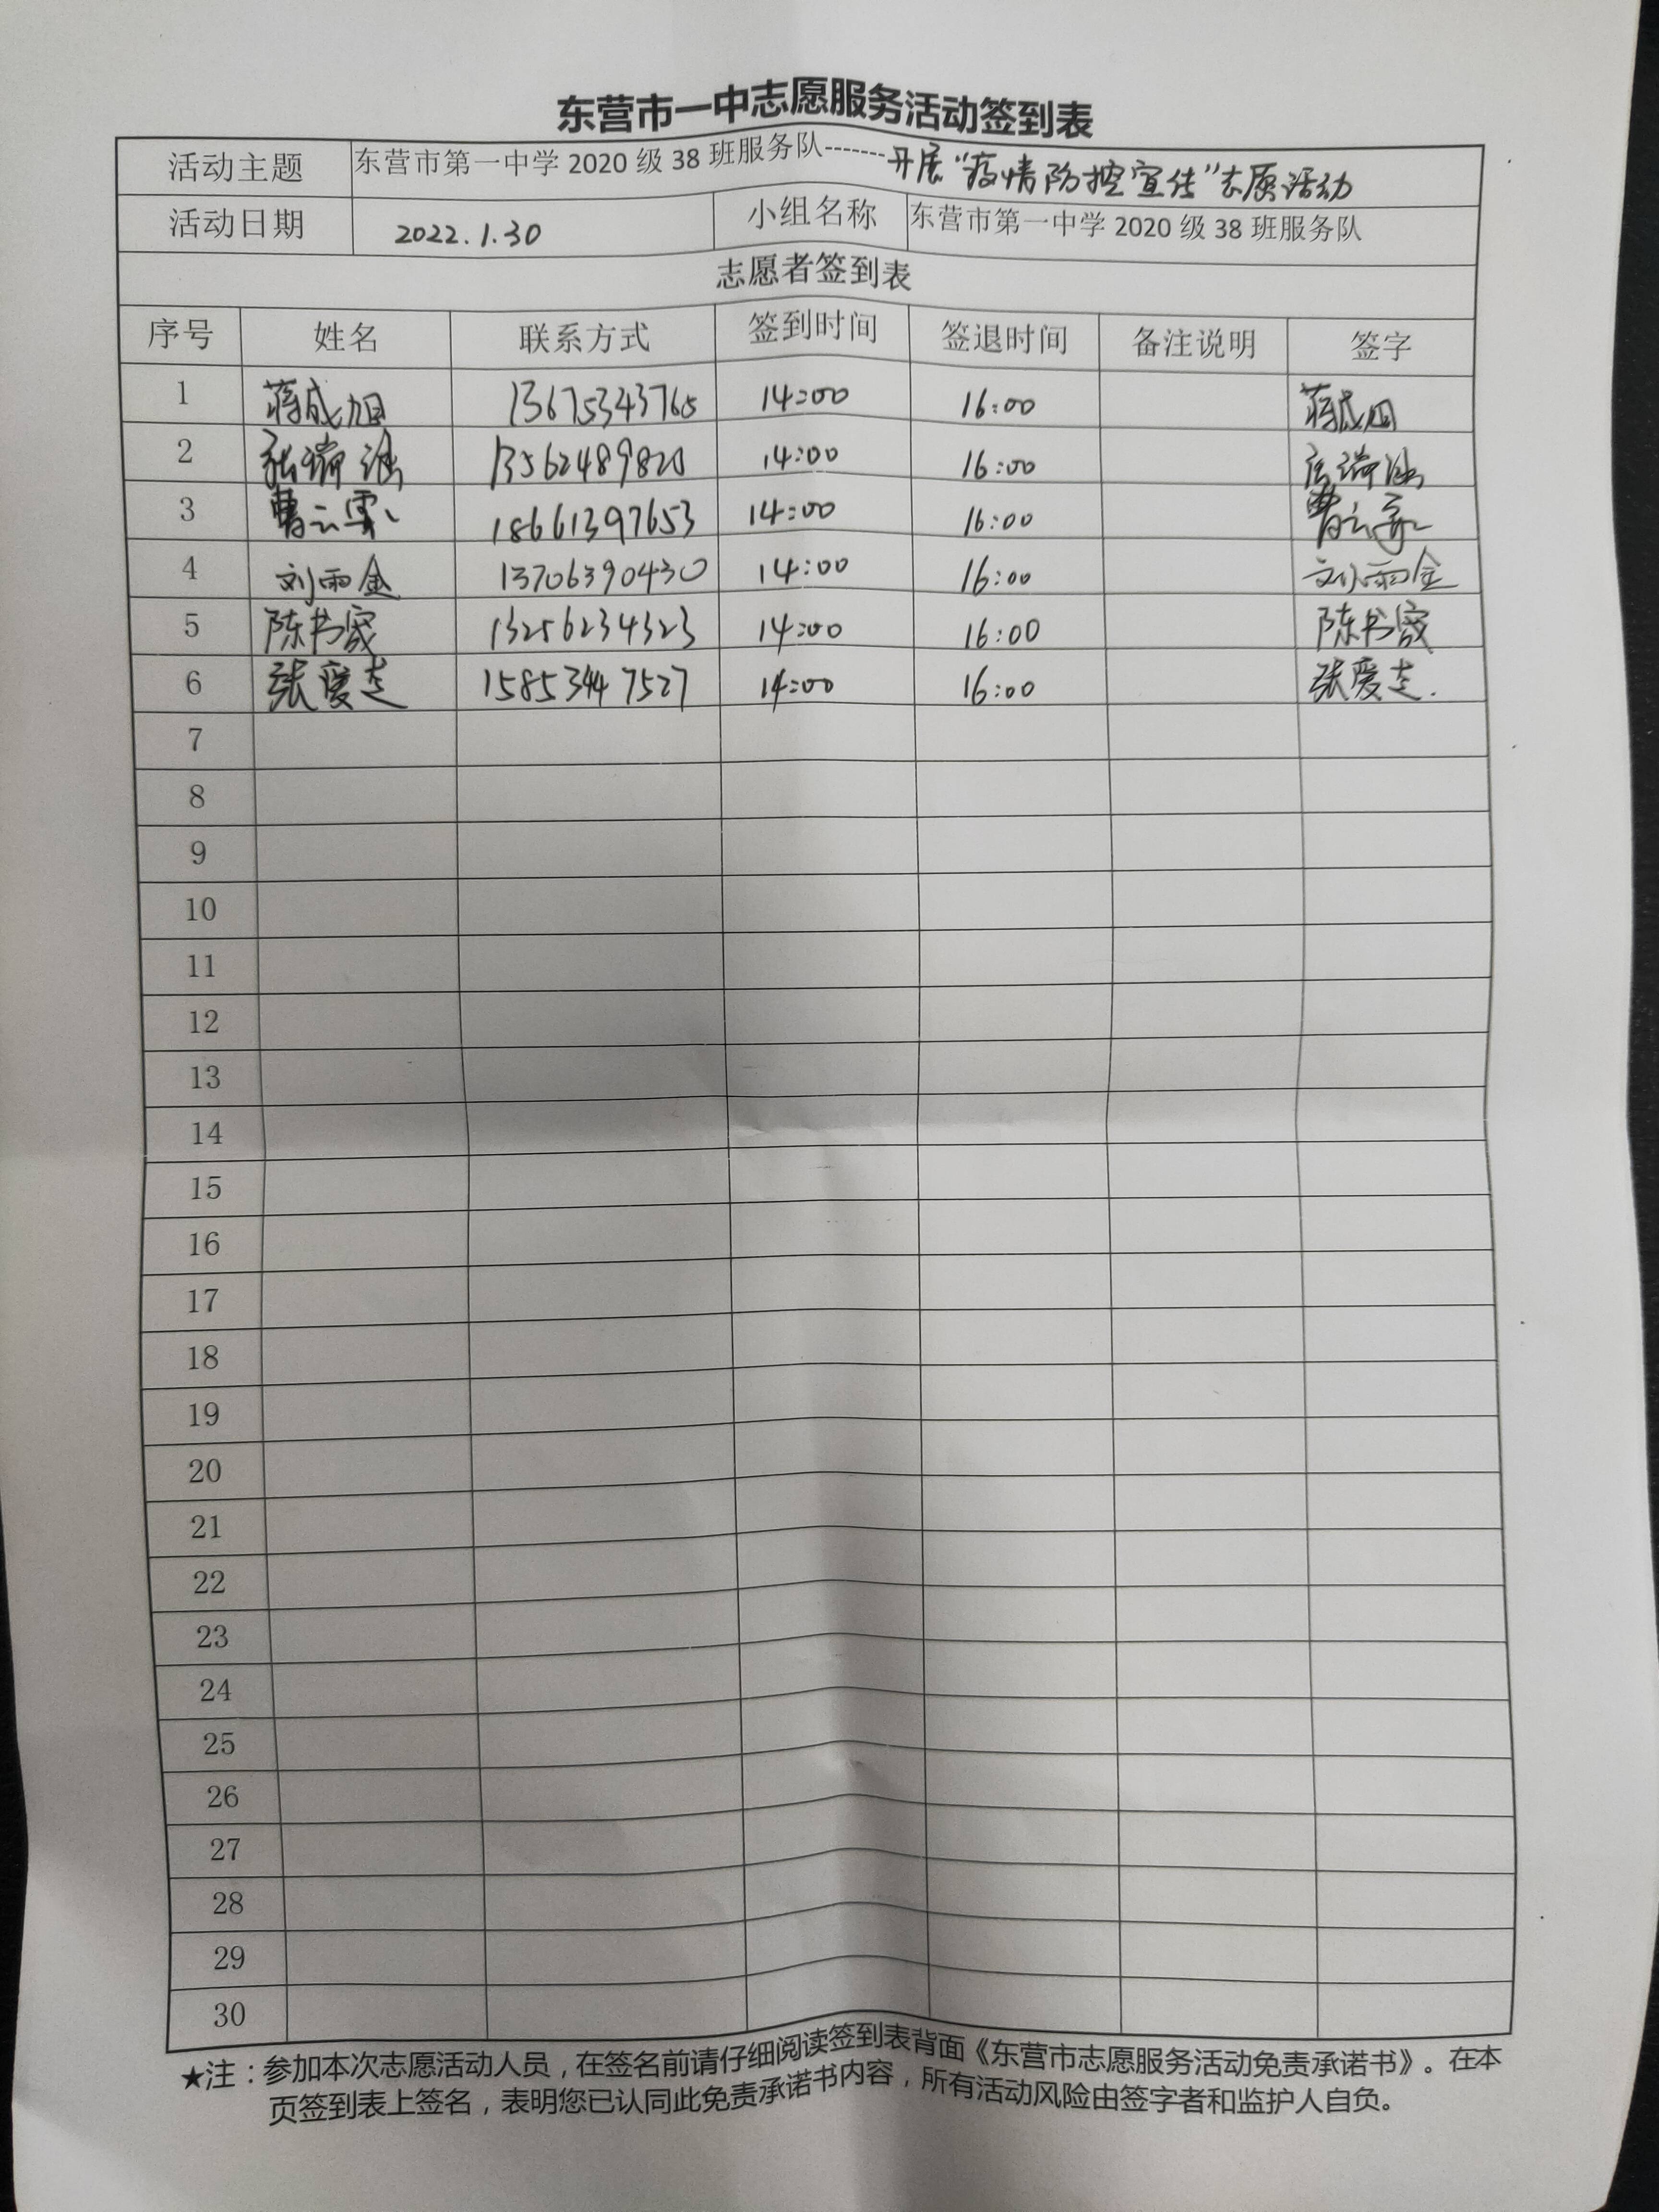 东营市一中志愿服务活动签到表
活动主题 东营市第一中学 2020 级 38 班服务队-------开展“疫情防控宣传”志愿活动
活动日期 2022.1.30 小组名称 东营市第一中学 2020 级 38 班服务队
志愿者签到表
序号 姓名 联系方式 签到时间 签退时间 备注说明 签字
1 蒋成旭 13675343765 14:00 16:00 蒋成旭
2 张瑞涵 14:00 16:00
3 曹云雯 18661397653 14:00 16:00 曹云雯
4 刘雨金 13706390430 14:00 16:00 刘雨金
5 陈书宬 13256234323 14:00 16:00 陈书宬
6 张爱芝 15853447527 14:00 16:00 张爱芝.
7
8
9
10
11
12
13
14
15
16
17
18
19
20
21
22
23
24
25
26
27
28
29
30
★注：参加本次志愿活动人员，在签名前请仔细阅读签到表背面《东营市志愿服务活动免责承诺书》。在本
页签到表上签名，表明您已认同此免责承诺书内容，所有活动风险由签字者和监护人自负。